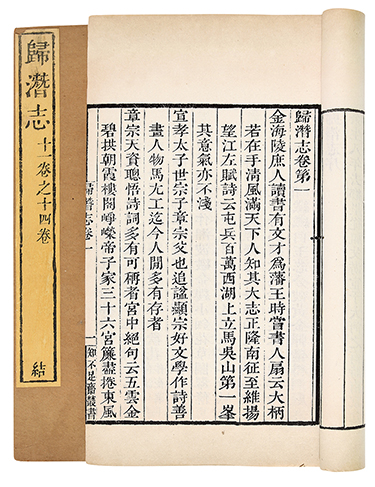 歸潛志卷第一
金海陵庶人讀書有文才爲藩王時嘗書人扇云大柄
若在手清風滿天下人知其大志正隆南征至維揚
望江左賦詩云屯兵百萬西湖上立馬吳山第一峯
其意氣亦不淺
宣孝太子世宗子章宗父也追謚顯宗好文學作詩善
畫人物馬尤工迄今人閒多有存者
章宗天資聰悟詩詞多有可稱者宮中絕句云五雲金
碧拱朝霞樓閣崢嶸帝子家三十六宮簾盡捲東風
歸潛志卷一
一
知不足齋叢書
歸潛志
十一卷之十四卷
結